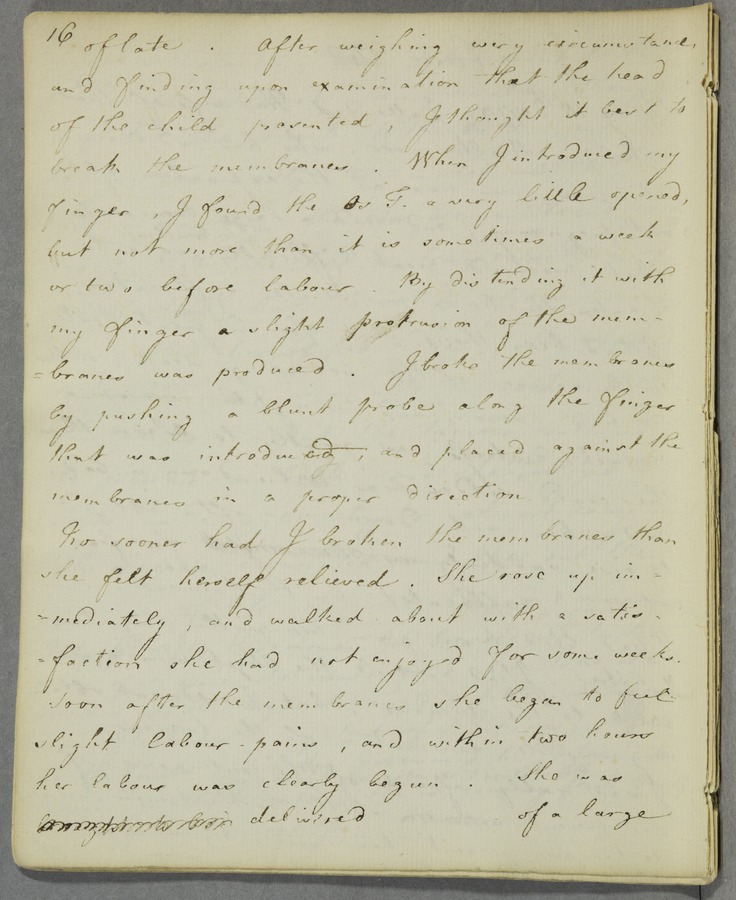 16 of late . After weighing every circumstance,
and finding upon examination that the head
of the child presented, I thought it best to
break the membranes . When I introduced my
finger, I found the Os T. a very little opened,
but not more than it is sometimes a week
or two before labour . By distending it with
my finger a slight protrusion of the mem-
=branes was produced . I broke the membranes
by pushing a blunt probe along the finger
that was introduced, and placed against the
membranes in a proper direction
No sooner had I broken the membranes than
she felt herself relieved . She rose up im=
=mediately, and walked about with a satis-
=faction she had not enjoyed for some weeks.
Soon after the membranes she began to feel
slight labour-pains, and within two hours
her labour was clearly begun . She was
delivered of a large